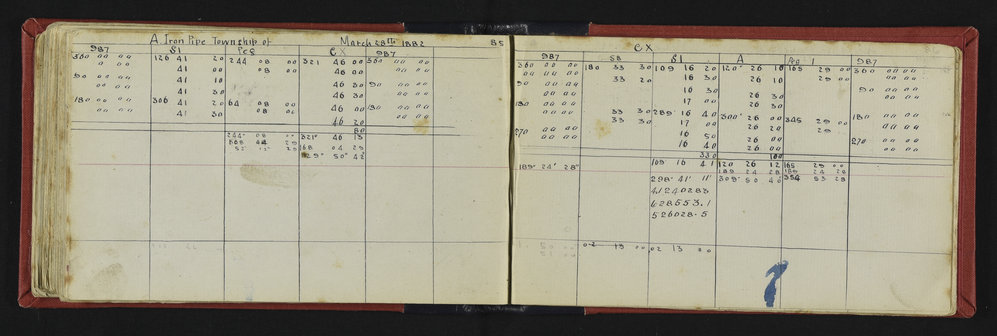 A. Iron Pipe Township of March 28th 1882 85
987 S1 PeG CX 987
360 00 00 126 41 20 244 08 00 321 46 00 360 00 00
00 00 41 00 08 00 46 00 00 00
90 00 00 41 10 46 30 90 00 00
00 00 41 30 46 30 00 00
180 00 00 306 41 20 64 08 00 46 00 180 00 00
00 00 41 30 08 00 46 20 00 00
80
244° 08 00 321° 46 13
168 04 29
129° 50' 42
CX
987 S8 S1 A Peg 1 987
360 00 00 180 33 30 109 16 20 120° 26 10 165 29 00 360 00 00
00 00 33 20 16 30 26 10 29 00 00 00
90 00 00 16 30 26 30 90 00 00
00 00 17 00 26 30 00 00
180 00 00 33 30 289° 16 40 300° 26 00 345 29 00 180 00 00
00 00 33 30 17 00 26 20 29 00 00
270 00 00 16 50 26 00 270 00 00
00 00 16 40 26 00 00 00
330 100
189° 24' 28" 109 16 41 120 26 12 165 29 00
189 24 28 189 24 28
298° 41' 11" 309° 50 40 354 53 28
4124028.8
628553.1
526028.5
02 13 00 02 13 00